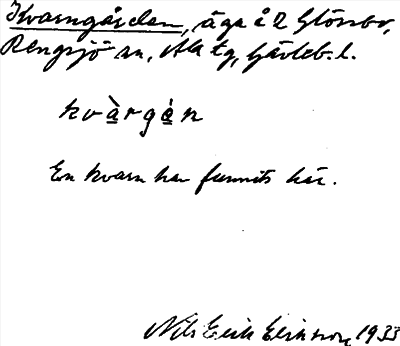 Kvarngården, äga å 2 Glössbo,
Rengsjö sn, Ala tg, Gävleb. l.
kvàrgá̀n
En kvarn har funnits här.
Nils Erik Eriksson 1933